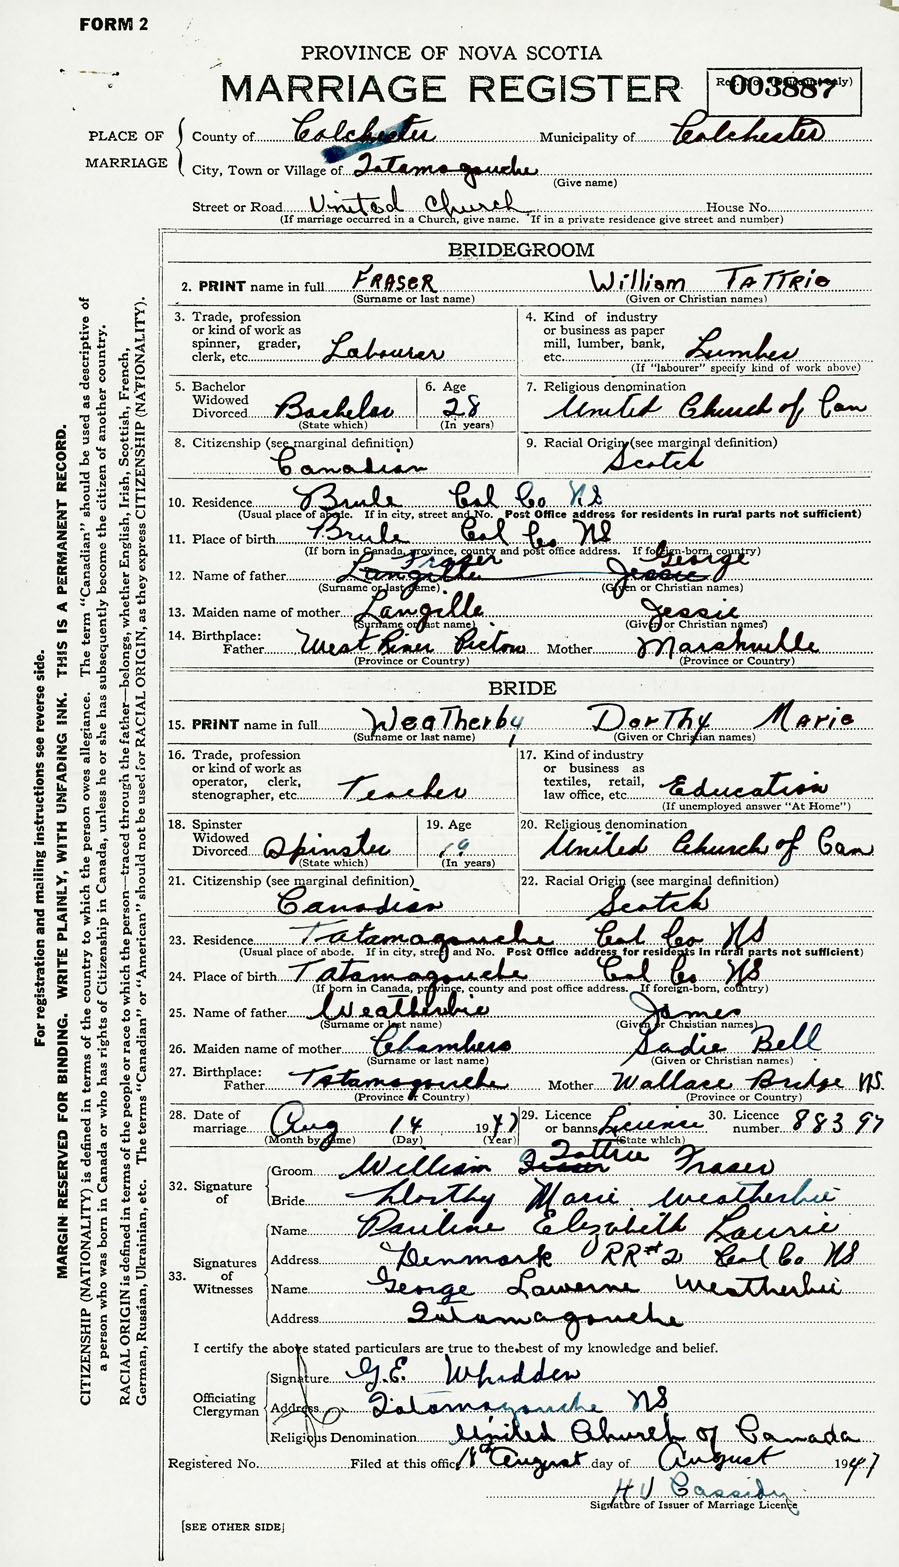 FORM 2
PROVINCE OF NOVA SCOTIA
MARRIAGE REGISTER
003887
PLACE OF MARRIAGE
County of Colchester Municipality of Colchester
City, Town or Village of Tatamagouche
(Give name)
Street or Road United Church House No.
(If marriage occurred in a Church, give name. If in a private residence give street and number)
BRIDEGROOM
2. PRINT name in full FRASER William TATTRIE
(Surname or last name) (Given or Christian names)
3. Trade, profession or kind of work as spinner, grader, clerk, etc. Labourer
4. Kind of industry or business as paper mill, lumber, bank, etc. Lumber
(If "labourer" specify kind of work above)
5. Bachelor Widowed Divorced Bachelor
(State which)
6. Age 28
(In years)
7. Religious denomination United Church of Can
8. Citizenship (see marginal definition) Canadian
9. Racial Origin (see marginal definition) Scotch
10. Residence Brule Col Co NS
(Usual place of abode. If in city, street and No. Post Office address for residents in rural parts not sufficient)
11. Place of birth Brule Col Co NS
(If born in Canada, province, county and post office address. If foreign-born, country)
Fraser George
12. Name of father Langille Jessie
(Surname or last name) (Given or Christian names)
13. Maiden name of mother Langille Jessie
(Surname or last name) (Given or Christian names)
14. Birthplace: Father West River Pictou Mother Marshville
(Province or Country) (Province or Country)
BRIDE
15. PRINT name in full Weatherby Dorthy Marie
(Surname or last name) (Given or Christian names)
16. Trade, profession or kind of work as operator, clerk, stenographer, etc. Teacher
17. Kind of industry or business as textiles, retail, law office, etc. Education
(If unemployed answer "At Home")
18. Spinster Widowed Divorced Spinster
(State which)
19. Age 19
(In years)
20. Religious denomination United Church of Can
21. Citizenship (see marginal definition) Canadian
22. Racial Origin (see marginal definition) Scotch
23. Residence Tatamagouche Col Co NS
(Usual place of abode. If in city, street and No. Post Office address for residents in rural parts not sufficient)
24. Place of birth Tatamagouche Col Co NS
(If born in Canada, province, county and post office address. If foreign-born, country)
25. Name of father Weatherbie James
(Surname or last name) (Given or Christian names)
26. Maiden name of mother Chambers Sadie Bell
(Surname or last name) (Given or Christian names)
27. Birthplace: Father Tatamagouche Mother Wallace Bridge NS.
(Province or Country) (Province or Country)
28. Date of marriage Aug 14 1947
(Month by name) (Day) (Year)
29. Licence or banns License
(State which)
30. Licence number 88397
32. Signature of
Groom William Tattrie Fraser
Bride Dorthy Marie Weatherbie
33. Signatures of Witnesses
Name Pauline Elizabeth Laurie
Address Denmark RR#2 Col Co NS
Name George Lawerne Weatherbie
Address Tatamagouche
I certify the above stated particulars are true to the best of my knowledge and belief.
Officiating Clergyman
Signature G.E. Whidden
Address Tatamagouche NS
Religious Denomination United Church of Canada
Registered No. Filed at this office 18th August day of August 1947
H V Cassidy
Signature of Issuer of Marriage Licence
[SEE OTHER SIDE]
For registration and mailing instructions see reverse side.
MARGIN RESERVED FOR BINDING. WRITE PLAINLY, WITH UNFADING INK. THIS IS A PERMANENT RECORD.
CITIZENSHIP (NATIONALITY) is defined in terms of the country to which the person owes allegiance. The term "Canadian" should be used as descriptive of
a person who was born in Canada or who has rights of Citizenship in Canada, unless he or she has subsequently become the citizen of another country.
RACIAL ORIGIN is defined in terms of the people or race to which the person—traced through the father—belongs, whether English, Irish, Scottish, French,
German, Russian, Ukrainian, etc. The terms "Canadian" or "American" should not be used for RACIAL ORIGIN, as they express CITIZENSHIP (NATIONALITY).